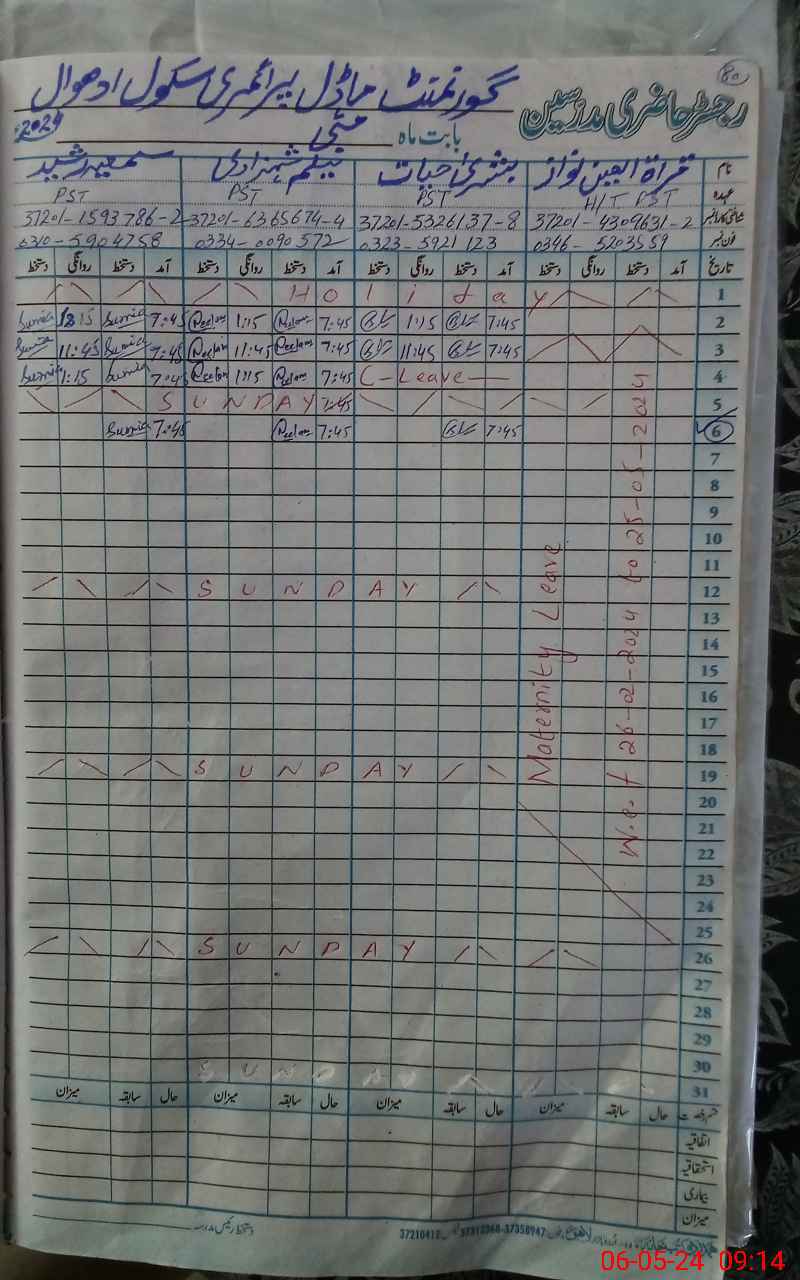 80
گورنمنٹ ماڈل پرائمری سکول ادھوال
رجسٹر حاضری مدرسین
بابت ماہ مئی 2024
نام قراۃ العین نواز بشریٰ حیات نیلم شہزادی سمعیہ رشید
عہدہ H/T PST PST PST PST
شناختی کارڈ نمبر 37201-4309631-2 37201-5326137-8 37201-6365674-4 37201-1593786-2
فون نمبر 0346-5203559 0323-5921123 0334-0090572 0310-5904758
تاریخ آمد دستخط روانگی دستخط آمد دستخط روانگی دستخط آمد دستخط روانگی دستخط آمد دستخط روانگی دستخط
Holiday 1
Sumia 12:15 Sumia 7:45 Neelam 1:15 Neelam 7:45 1:15 7:45 2
Sumia 11:45 Sumia 7:45 Neelam 11:45 Neelam 7:45 11:45 7:45 3
Sumia 1:15 Sumia 7:45 Neelam 1:15 Neelam 7:45 C-Leave 4
SUNDAY 7:45 5
Sumia 7:45 Neelam 7:45 7:45 6
7
8
9
10
11
SUNDAY 12
13
14
15
16
17
18
SUNDAY 19
20
21
22
23
24
25
SUNDAY 26
27
28
29
30
31
Maternity Leave
W.e.f 26-02-2024 to 25-05-2024
حال سابقہ میزان حال سابقہ میزان حال سابقہ میزان حال سابقہ میزان
اتفاقیہ
استحقاقیہ
بیماری
میزان
دستخط رئیس مدرسہ
06-05-24 09:14